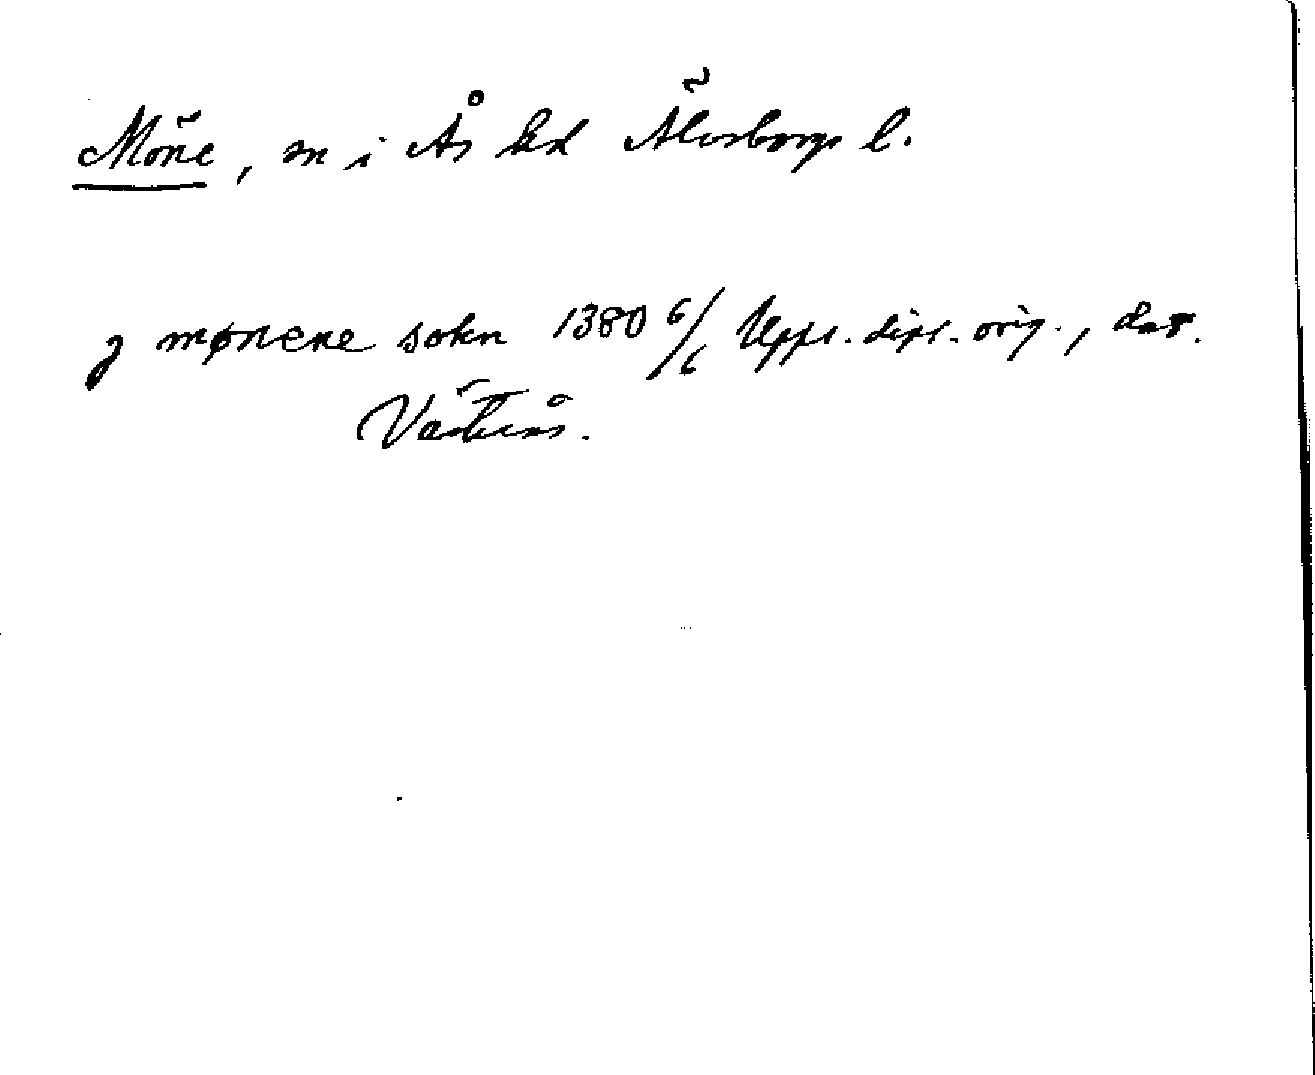 Möne, sn i Ås hd Älvsborgs l.
j mønene sokn 1380 6/6 Uppl. dipl. orig., dat.
Västerås.